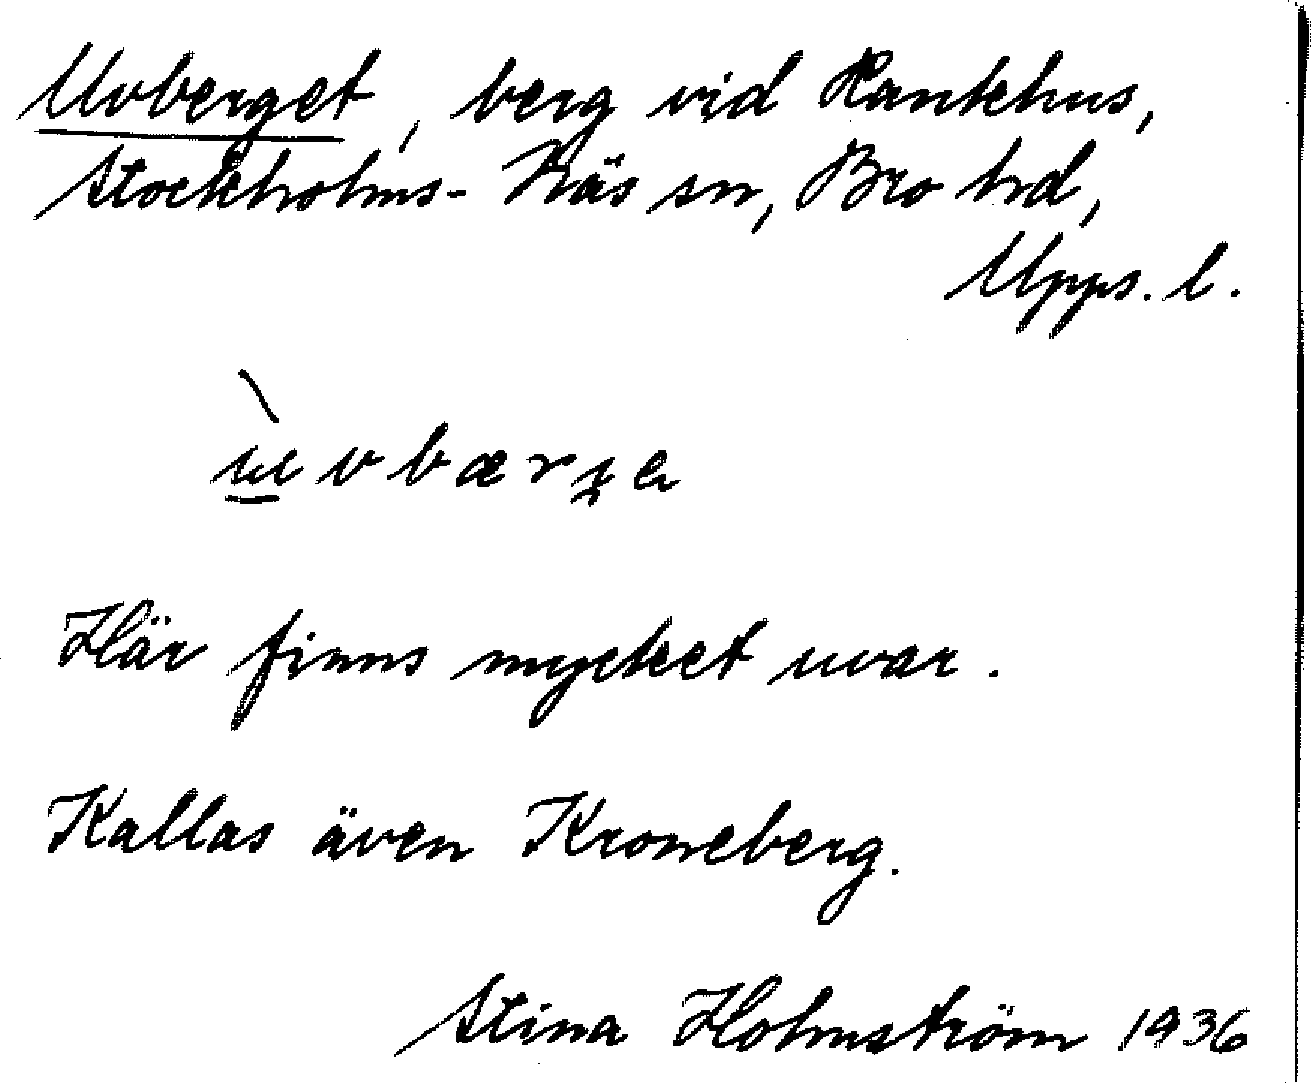 Uvberget, berg vid Kankhus,
Stockholms-Näs sn, Bro hd,
Upps. l.
Här finns mycket uvar.
Kallas även Kroneberg.
Stina Holmström 1936